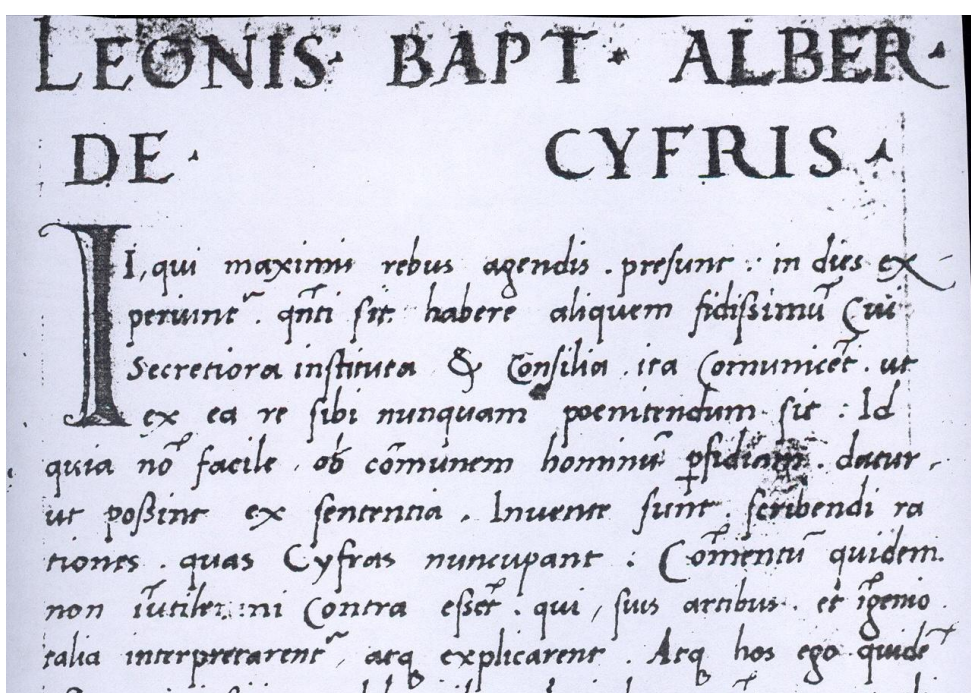 LEONIS · BAPT · ALBER ·
DE · CYFRIS ·
II, qui maximis rebus agendis . presunt : in dies ex-
periunt᷑ . qn̄ti sit habere aliquem fidissimū Cui
Secretiora instituta & Consilia . ita Comunicēt . ut
ex ea re sibi nunquam poenitendum sit : Id
quia nō facile . ob cōmunem hominū ꝑfidiam . datur ,
ut possint ex sententia . Invente sunt . scribendi ra
tiones . quas Cyfras nuncupant : Cōmentū quidem .
non īutile : ni Contra essēt . qui , suis artibus . et īgenio .
talia interpretarent᷑ , atq explicarent . Atq hos ego quidē